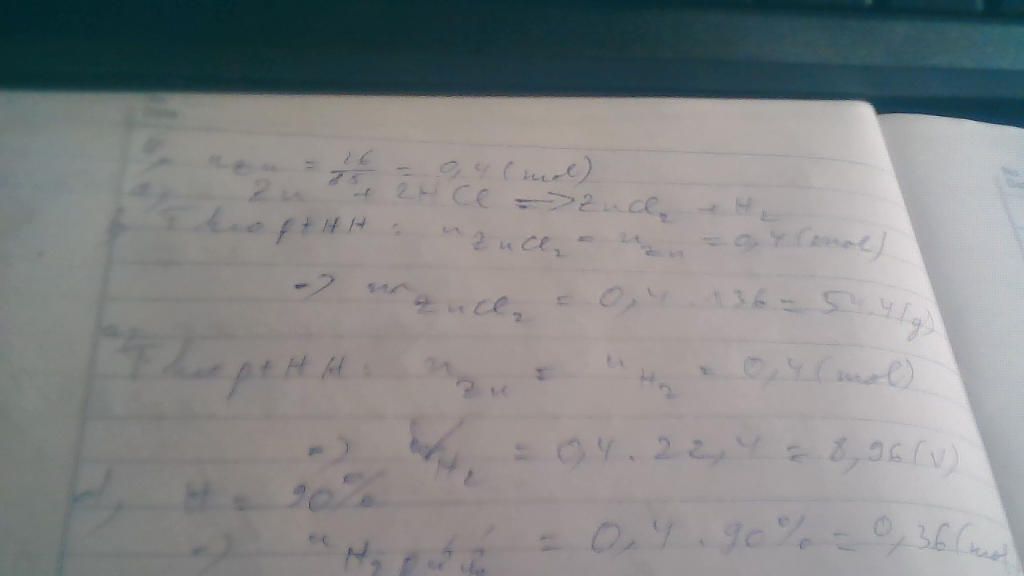 n Zn = 26/65 = 0,4 (mol)
a, Zn + 2HCl => ZnCl2 + H2
b, Theo ptHH: n ZnCl2 = n Zn = 0,4 (mol)
=> m ZnCl2 = 0,4 . 136 = 54,4 (g)
Theo ptHH: n Zn = n H2 = 0,4 (mol)
=> V H2 = 0,4 . 22,4 = 8,96 (V)
d, H = 90%
=> n H2 = 0,4 . 90% = 0,36 (mol